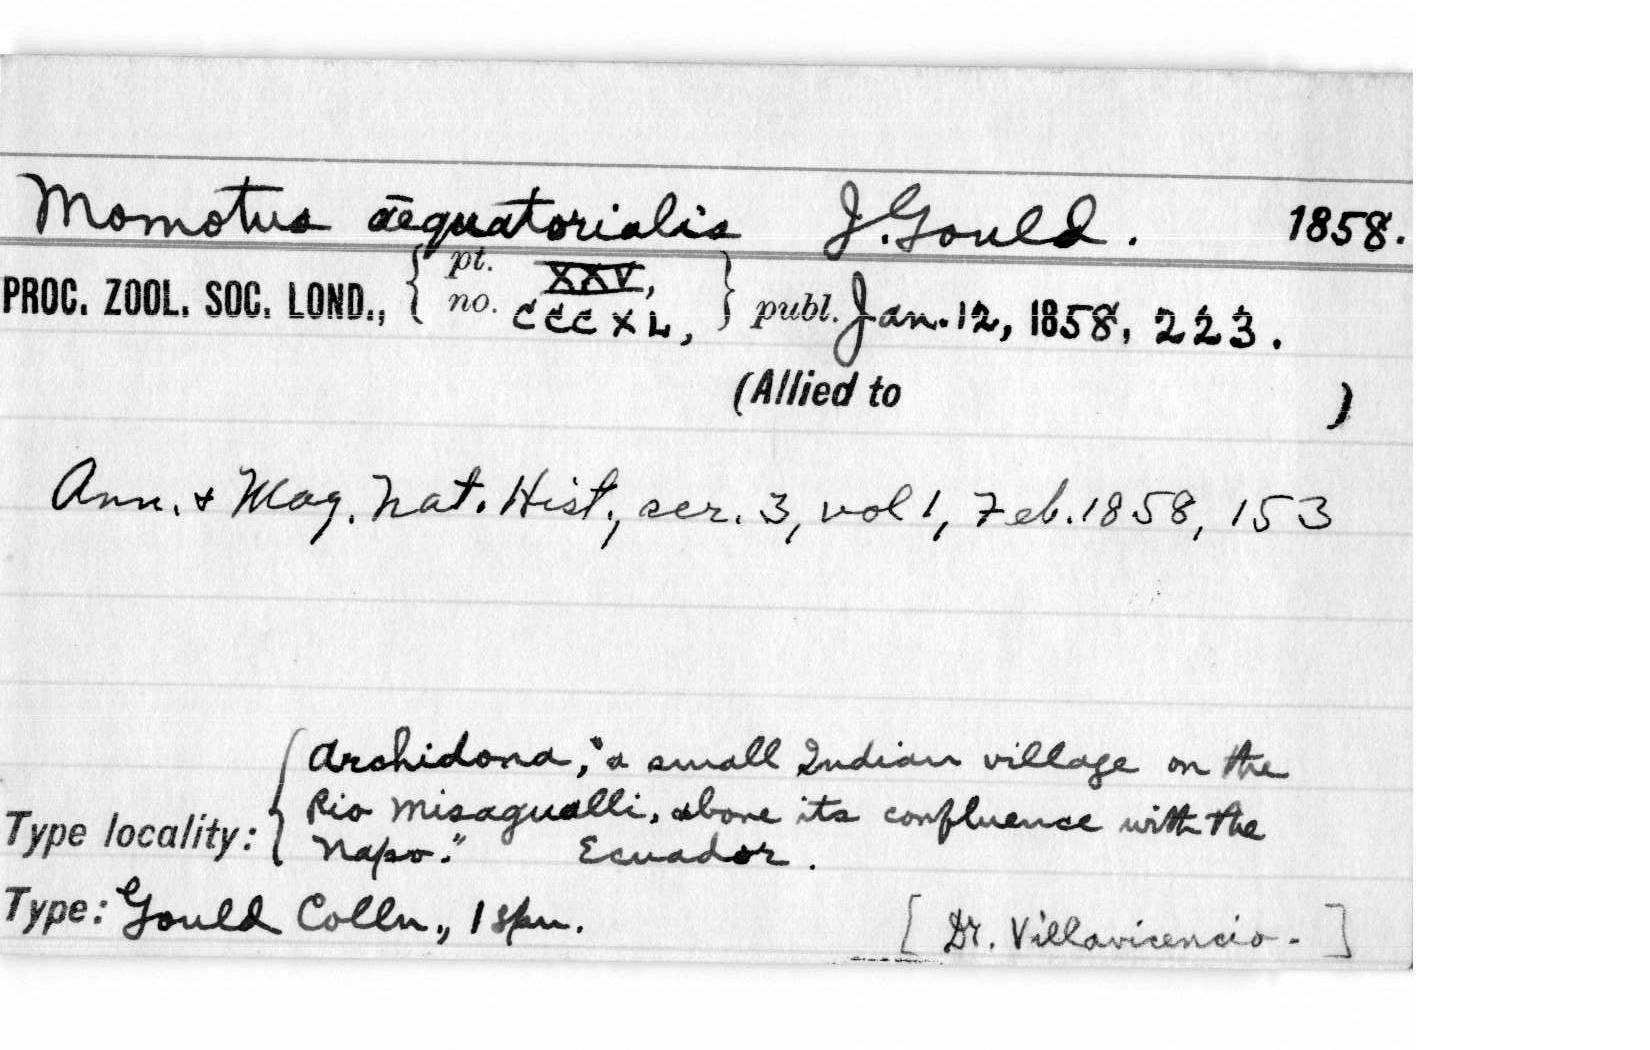 Momotus aequatorialis J. Gould. 1858.
PROC. ZOOL. SOC. LOND., { pt. XXV, no. CCCXL, } publ. Jan. 12, 1858, 223.
(Allied to )
Ann. & Mag. Nat. Hist., ser. 3, vol 1, Feb. 1858, 153
Archidona, "a small Indian village on the
Rio Misagualli, above its confluence with the
Type locality: { Napo." Ecuador.
Type: Gould Colln., 1 spn. [ Dr. Villavicencio. ]